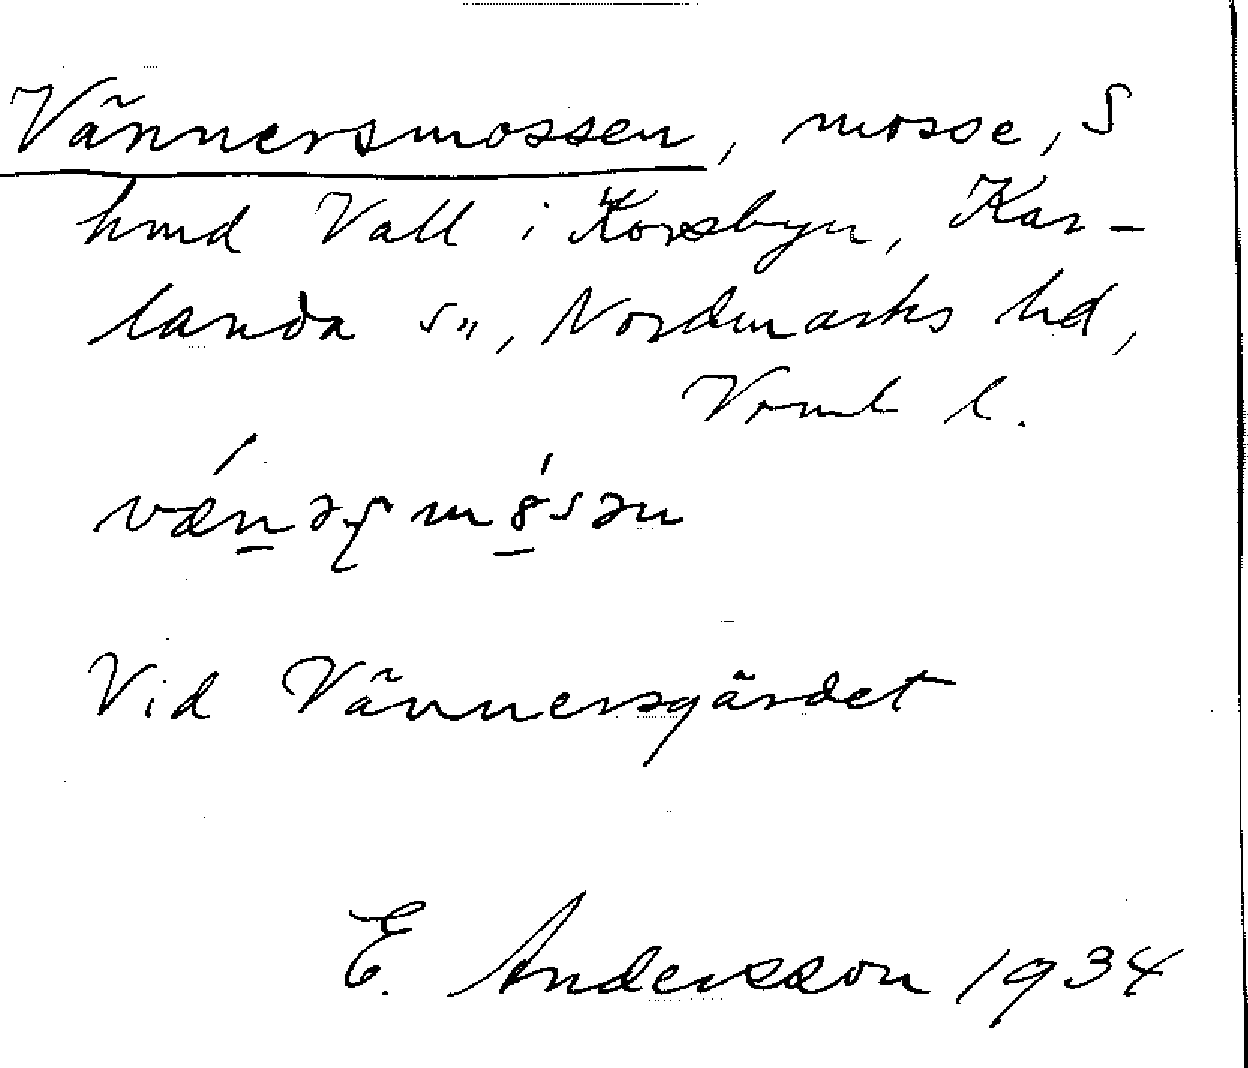 Vännersmossen, mosse, S
hmd Vall i Korsbyn, Kar-
landa sn, Nordmarks hd,
Vrml l.
Vid Vännersgärdet
E. Andersson 1934